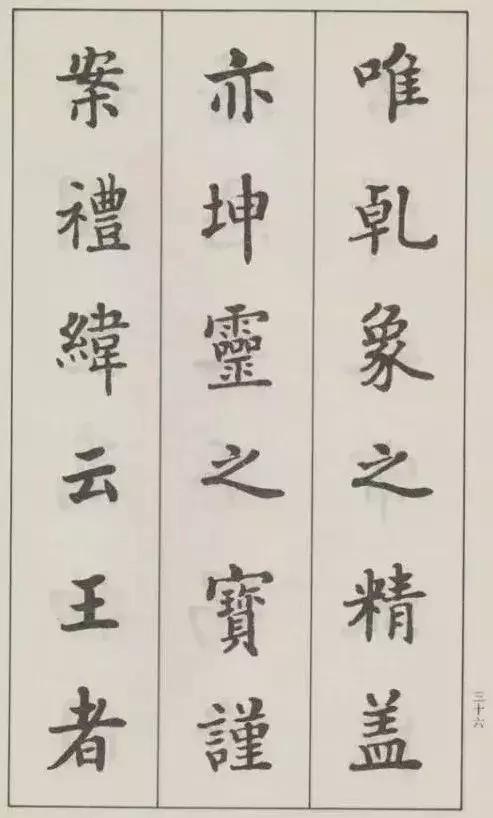 唯乹象之精盖
亦坤靈之寶謹
案禮緯云王者
三十六